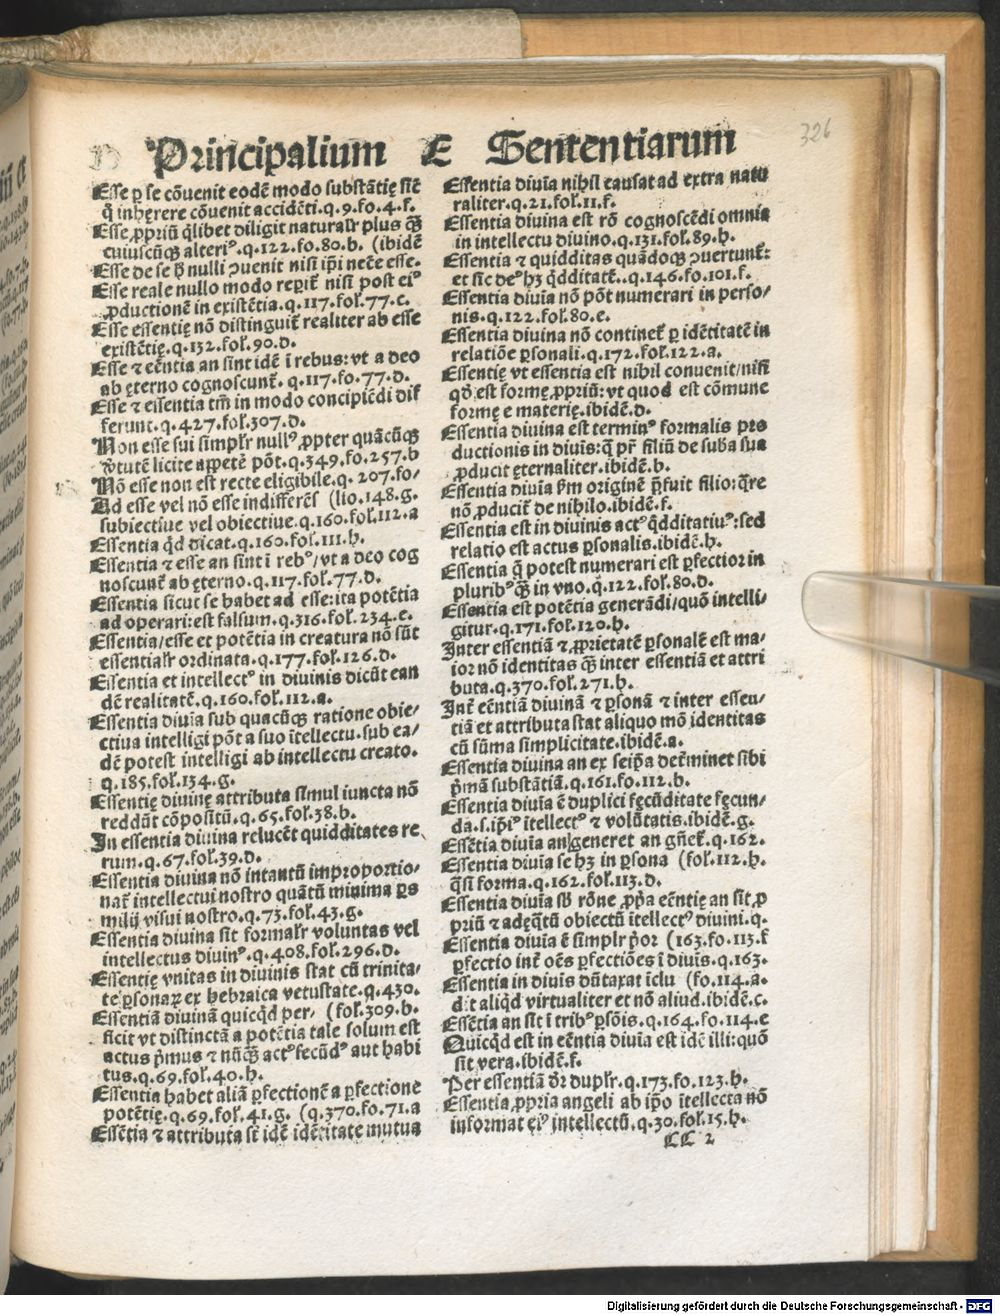 326
Principalium E Sententiarum
Esse ꝑ se cõuenit eodẽ modo substãtię sic̃
q̃ inhęrere cõuenit accidẽti.q.9.fo.4.f.
Esse ꝓpriũ q̃libet diligit naturalr̃ plus q̃ꝫ
cuiuscũqꝫ alteriꝰ.q.122.fo.80.b. (ibidẽ
Esse de se nulli ꝯuenit nisi ip̃i necẽ esse.
Esse reale nullo modo reꝑit̃ nisi post eiꝰ
ꝓductionẽ in existẽtia.q.117.fol.77.c.
Esse essentię nõ distinguit̃ realiter ab esse
existẽtię.q.132.fol.90.d.
Esse ⁊ eẽntia an sint idẽ ĩ rebus:vt a deo
ab ęterno cognoscunt̃.q.117.fo.77.d.
Esse ⁊ essentia tm̃ in modo concipiẽdi dif
ferunt.q.427.fol.307.d.
Non esse sui simplr̃ nullꝰ ꝓpter quãcũqꝫ
ṽtutẽ licite appetẽ põt.q.349.fo.257.b
Nõ esse non est recte eligibile.q.207.fo/
Ad esse vel nõ esse indifferẽs (lio.148.g.
subiectiue vel obiectiue.q.160.fol.112.a
Essentia qd̃ dicat.q.160.fol.111.h.
Essentia ⁊ esse an sint ĩ rebꝰ/vt a deo cog
noscunt̃ ab ęterno.q.117.fol.77.d.
Essentia sicut se habet ad esse:ita potẽtia
ad operari:est falsum.q.316.fol.234.e.
Essentia/esse et potẽtia in creatura nõ sũt
essentialr̃ ordinata.q.177.fol.126.d.
Essentia et intellectꝰ in diuinis dicũt ean
dẽ realitatẽ.q.160.fol.112.a.
Essentia diuĩa sub quacũqꝫ ratione obie/
ctiua intelligi põt a suo ĩtellectu.sub ea/
dẽ potest intelligi ab intellectu creato.
q.185.fol.134.g.
Essentię diuinę attributa simul iuncta nõ
reddũt cõpositũ.q.65.fol.38.b.
In essentia diuina relucẽt quidditates re
rum.q.67.fol.39.d.
Essentia diuina nõ intantũ improportio/
nat̃ intellectui nostro quãtũ minima ꝑs
milij visui nostro.q.73.fol.43.g.
Essentia diuina sit formalr̃ voluntas vel
intellectus diuinꝰ.q.408.fol.296.d.
Essentię vnitas in diuinis stat cũ trinita/
te ꝑsonaꝝ ex hebraica vetustate.q.430.
Essentiã diuinã quicqd̃ per/ (fol.309.b.
ficit vt distinctã a potẽtia tale solum est
actus p̃mus ⁊ nũq̃ꝫ actꝰ fecũdꝰ aut habi
tus.q.69.fol.40.h.
Essentia habet aliã ꝑfectionẽ a ꝑfectione
potẽtię.q.69.fol.41.g. (q.370.fo.71.a
Essẽtia ⁊ attributa st̃ idẽ idẽtitate mutua
Essentia diuĩa nihil causat ad extra natu
raliter.q.21.fol.11.f.
Essentia diuina est rõ cognoscẽdi omnia
in intellectu diuino.q.131.fol.89.h.
Essentia ⁊ quidditas quãdoqꝫ ꝯuertunt̃:
et sic deꝰ hꝫ q̃dditatẽ..q.146.fo.101.f.
Essentia diuĩa nõ põt numerari in perso/
nis.q.122.fol.80.e.
Essentia diuina nõ continet̃ ꝑ idẽtitatẽ in
relatiõe ꝑsonali.q.172.fol.122.a.
Essentię vt essentia est nihil conuenit/nisi
qd̃ est formę ꝓpriũ:vt quod est cõmune
formę e materię.ibidẽ.d.
Essentia diuina est terminꝰ formalis pro
ductionis in diuis:q̃ pr̃ filiũ de suba sua
ꝓducit ęternaliter.ibidẽ.b.
Essentia diuĩa ẜm originẽ p̃fuit filio:q̃re
nõ ꝓducit̃ de nihilo.ibidẽ.f.
Essentia est in diuinis actꝰ q̃dditatiuꝰ:sed
relatio est actus ꝑsonalis.ibidẽ.h.
Essentia q̃ potest numerari est ꝑfectior in
pluribꝰ q̃ꝫ in vno.q.122.fol.80.d.
Essentia est potẽtia generãdi/quo intelli/
gitur.q.171.fol.120.h.
Inter essentiã ⁊ ꝓprietatẽ ꝑsonalẽ est ma/
ior nõ identitas q̃ꝫ inter essentiã et attri
buta.q.370.fol.271.h.
Int̃ eẽntiã diuinã ⁊ ꝑsonã ⁊ inter essen/
tiã et attributa stat aliquo mõ identitas
cũ sũma simplicitate.ibidẽ.a.
Essentia diuina an ex seip̃a det̃minet sibi
p̃mã substãtiã.q.161.fo.112.b.
Essentia diuĩa ẽ duplici fęcũditate fęcun/
da.s.ip̃iꝰ ĩtellectꝰ ⁊ volũtatis.ibidẽ.g.
Essẽtia diuĩa an generet an gñet̃.q.162.
Essentia diuĩa se hꝫ in ꝑsona (fol.112.h.
q̃si forma.q.162.fol.113.d.
Essentia diuĩa sƀ rõne ꝓp̃a eẽntię an sit ꝓ
priũ ⁊ adęq̃tũ obiectũ ĩtellectꝰ diuini.q.
Essentia diuĩa ẽ simplr̃ p̃or (163.fo.113.f
ꝑfectio int̃ oẽs ꝑfectiões ĩ diuis.q.163.
Essentia in diuis dũtaxat ĩclu (fo.114.a.
dit aliqd̃ virtualiter et nõ aliud.ibidẽ.c.
Essẽtia an sit ĩ tribꝰ ꝑsõis.q.164.fo.114.e
Quicqd̃ est in eẽntia diuĩa est idẽ illi:quo
sit vera.ibidẽ.f.
Per essentiã dr̃ duplr̃.q.173.fo.123.h.
Essentia ꝓpria angeli ab ip̃o ĩtellecta nõ
informat eiꝰ intellectũ.q.30.fol.15.h.
CC 2
Digitalisierung gefördert durch die Deutsche Forschungsgemeinschaft - DFG